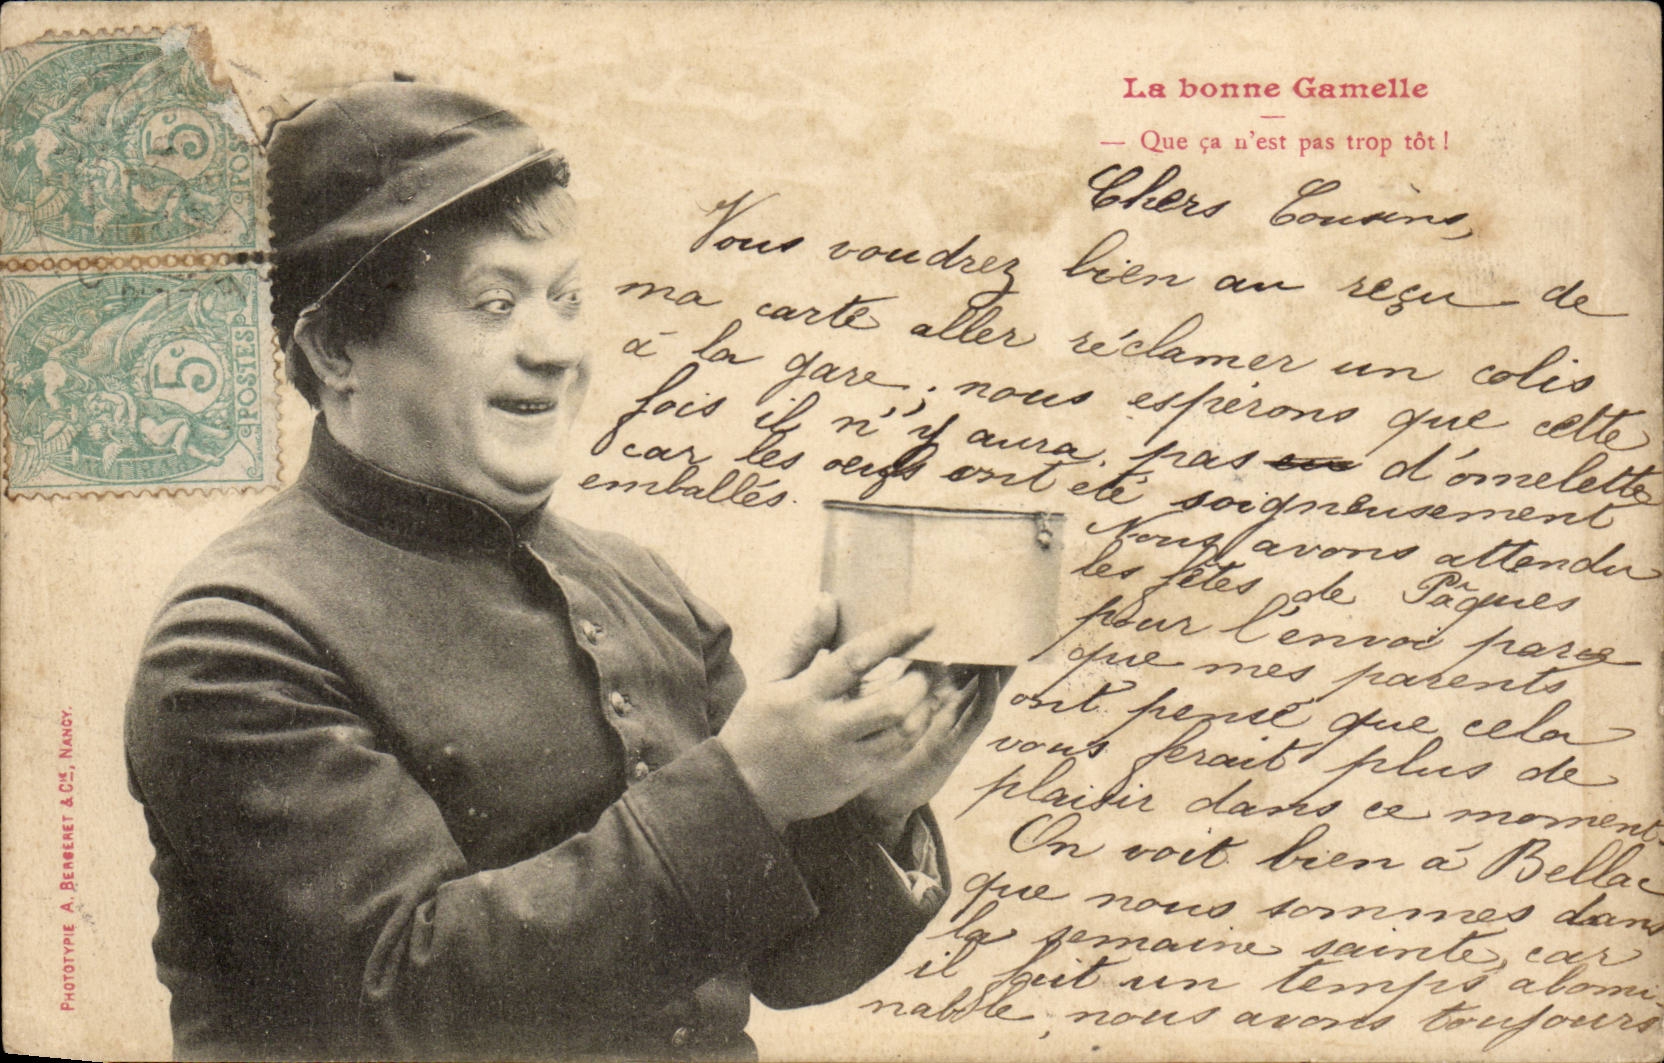 La bonne Gamelle
— Que ça n'est pas trop tôt !
Chers Cousins,
Vous voudrez bien au reçu de
ma carte aller réclamer un colis
à la gare ; nous espérons que cette
fois il n'y aura pas d'omelette
car les oeufs ont été soigneusement
emballés.
Nous avons attendu
les fêtes de Pâques
pour l'envoi parce
que mes parents
ont pensé que cela
vous ferait plus de
plaisir dans ce moment.
On voit bien à Bellac
que nous sommes dans
la semaine sainte, car
il fait un temps abomi-
nable, nous avons toujours
5c
POSTES
5c
POSTES
PHOTOTYPIE A. BERGERET & Cie, NANCY.